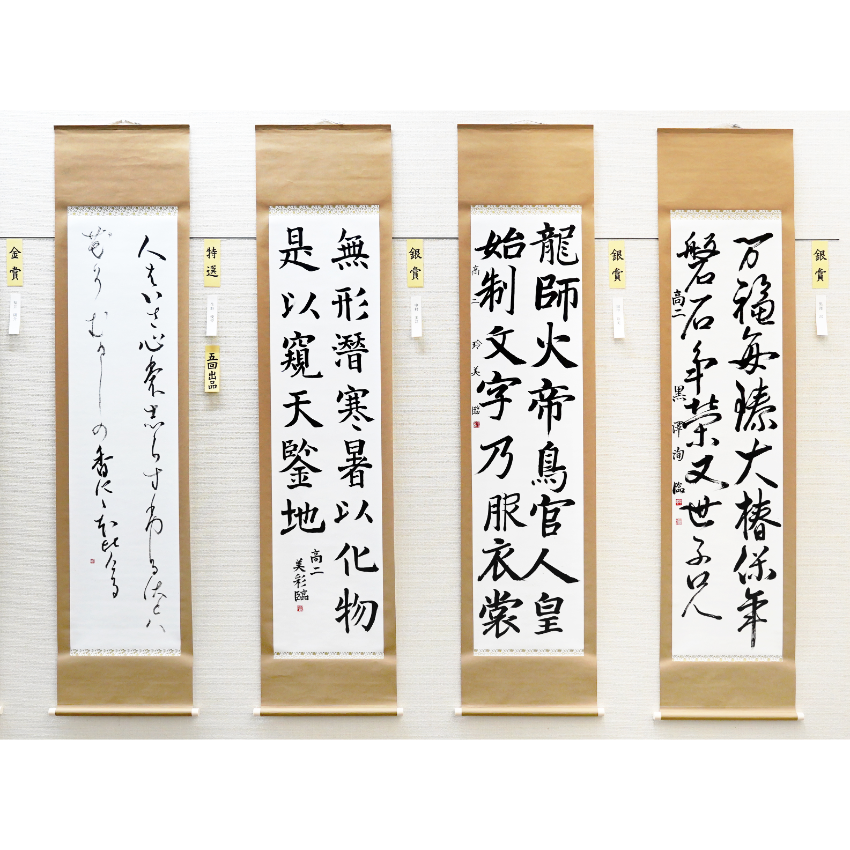 銀賞
万福每臻大椿保年
磐石年榮又世子
高二 黒澤洵 臨
銀賞
龍師火帝鳥官人皇
始制文字乃服衣裳
高二 玲美 臨
銀賞
無形潛寒暑以化物
是以窺天鑒地
高二
美彩臨
特選
五回出品
人はいさ心裳志らす布るさと八
花そむかしの香に本比ける
金賞